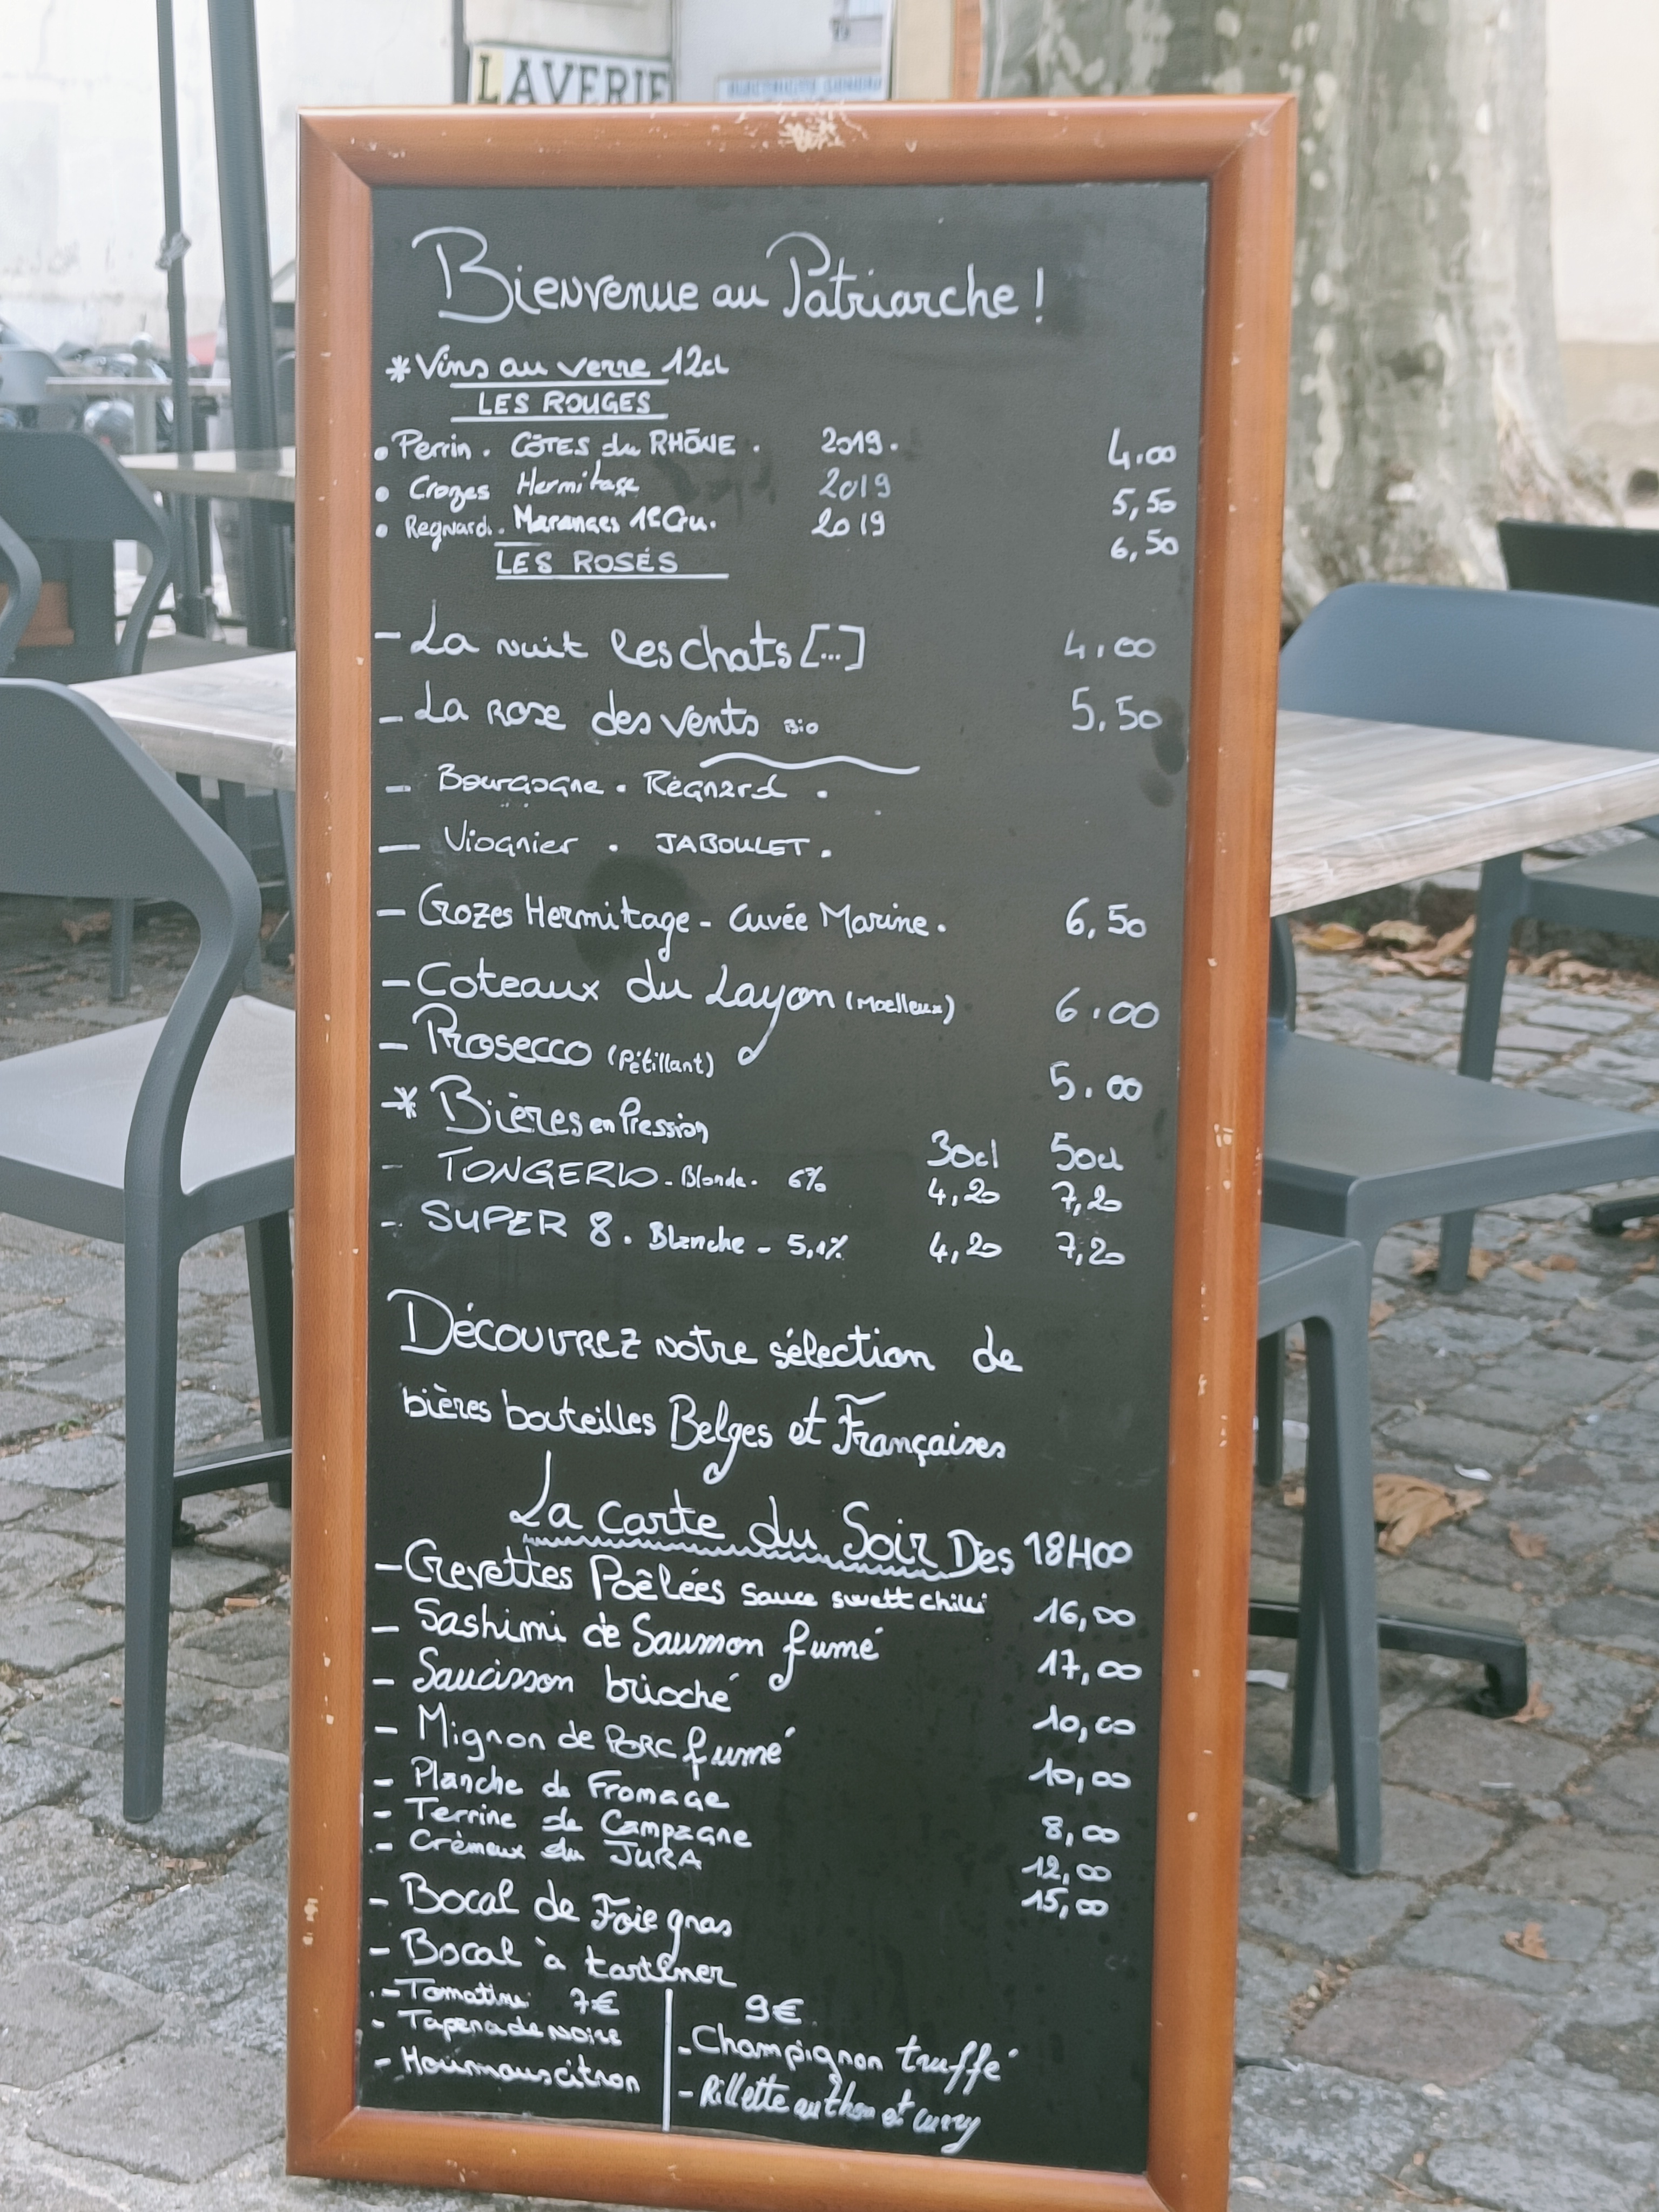 LAVERIE
Bienvenue au Patriarche !
* Vins au verre 12cl
LES ROUGES
• Perrin . CÔTES du RHÔNE . 2019. 4.00
• Crozes Hermitage 2019 5,50
• Regnard. Maranges 1er Cru. 2019 6,50
LES ROSÉS
- La nuit les chats [...] 4.00
- La rose des vents Bio 5.50
- Bourgogne . Régnard .
- Viognier . JABOULET .
- Crozes Hermitage - Cuvée Marine . 6,50
- Coteaux du Layon (Moelleux) 6.00
- Prosecco (Pétillant) 5.00
* Bières en Pression 30cl 50cl
- TONGERLO - Blonde. 6% 4,20 7,20
- SUPER 8. Blanche - 5,1% 4,20 7,20
Découvrez notre sélection de
bières bouteilles Belges et Françaises
La Carte du Soir Dès 18H00
- Crevettes Poêlées sauce swett chilli 16,00
- Sashimi de Saumon fumé 17,00
- Saucisson brioché 10,00
- Mignon de PORC fumé 10,00
- Planche de Fromage 8,00
- Terrine de Campagne 12,00
- Crémeux du JURA 15,00
- Bocal de Foie gras
- Bocal à tartiner
- Tomatine 7€ 9€
- Tapenade noire - Champignon truffé
- Houmous citron - Rillette au thon et curry